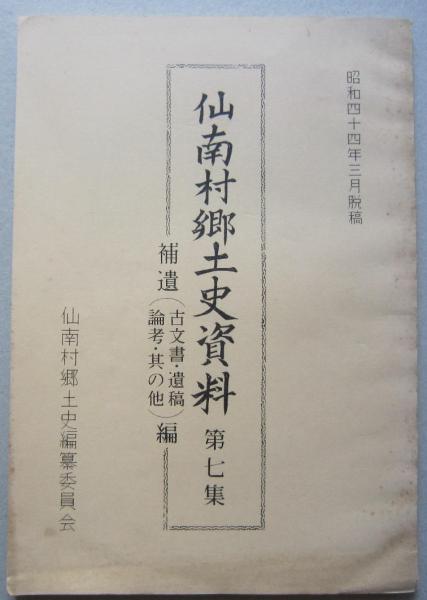 昭和四十四年三月脱稿
仙南村郷土史資料 第七集
補遺(古文書・遺稿
論考・其の他)編
仙南村郷土史編纂委員会